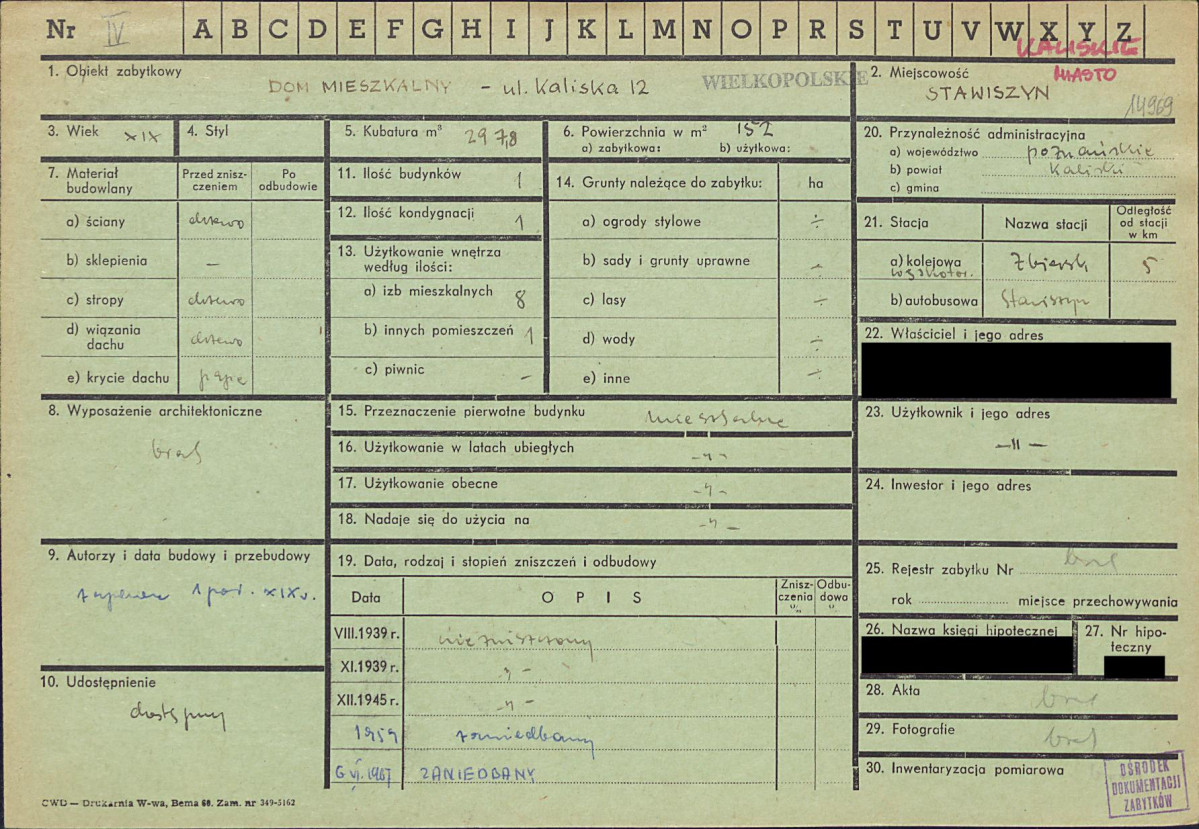 Nr IV A B C D E F G H I J K L M N O P R S T U V W X Y Z
KALISKIE
MIASTO
1. Obiekt zabytkowy
DOM MIESZKALNY - ul. Kaliska 12
WIELKOPOLSKIE
2. Miejscowość
STAWISZYN
14969
3. Wiek XIX
4. Styl
5. Kubatura m³ 297,8
6. Powierzchnia w m² 152
a) zabytkowa: b) użytkowa:
7. Materiał budowlany
Przed zniszczeniem
Po odbudowie
a) ściany drzewo
b) sklepienia –
c) stropy drzewo
d) wiązania dachu drzewo
e) krycie dachu papa
8. Wyposażenie architektoniczne
brak
9. Autorzy i data budowy i przebudowy
1 poł. XIX w.
10. Udostępnienie
dostępny
11. Ilość budynków 1
12. Ilość kondygnacji 1
13. Użytkowanie wnętrza według ilości:
a) izb mieszkalnych 8
b) innych pomieszczeń 1
c) piwnic –
14. Grunty należące do zabytku: ha
a) ogrody stylowe ÷
b) sady i grunty uprawne ÷
c) lasy ÷
d) wody ÷
e) inne ÷
15. Przeznaczenie pierwotne budynku mieszkalne
16. Użytkowanie w latach ubiegłych -„-
17. Użytkowanie obecne -„-
18. Nadaje się do użycia na -„-
19. Data, rodzaj i stopień zniszczeń i odbudowy
Data OPIS Zniszczenia % Odbudowa %
VIII.1939 r. niezniszczony
XI.1939 r. -„-
XII.1945 r. -„-
1959 zaniedbany
6 VI. 1967 ZANIEDBANY
20. Przynależność administracyjna
a) województwo poznańskie
b) powiat kaliski
c) gmina
21. Stacja
Nazwa stacji
Odległość od stacji w km
a) kolejowa wąskotor. Zbiersk 5
b) autobusowa Stawiszyn
22. Właściciel i jego adres
23. Użytkownik i jego adres
-„-
24. Inwestor i jego adres
25. Rejestr zabytku Nr brak
rok miejsce przechowywania
26. Nazwa księgi hipotecznej
27. Nr hipoteczny
28. Akta brak
29. Fotografie brak
30. Inwentaryzacja pomiarowa
OŚRODEK
DOKUMENTACJI
ZABYTKÓW
CWD — Drukarnia W-wa, Bema 60. Zam. nr 349-5162